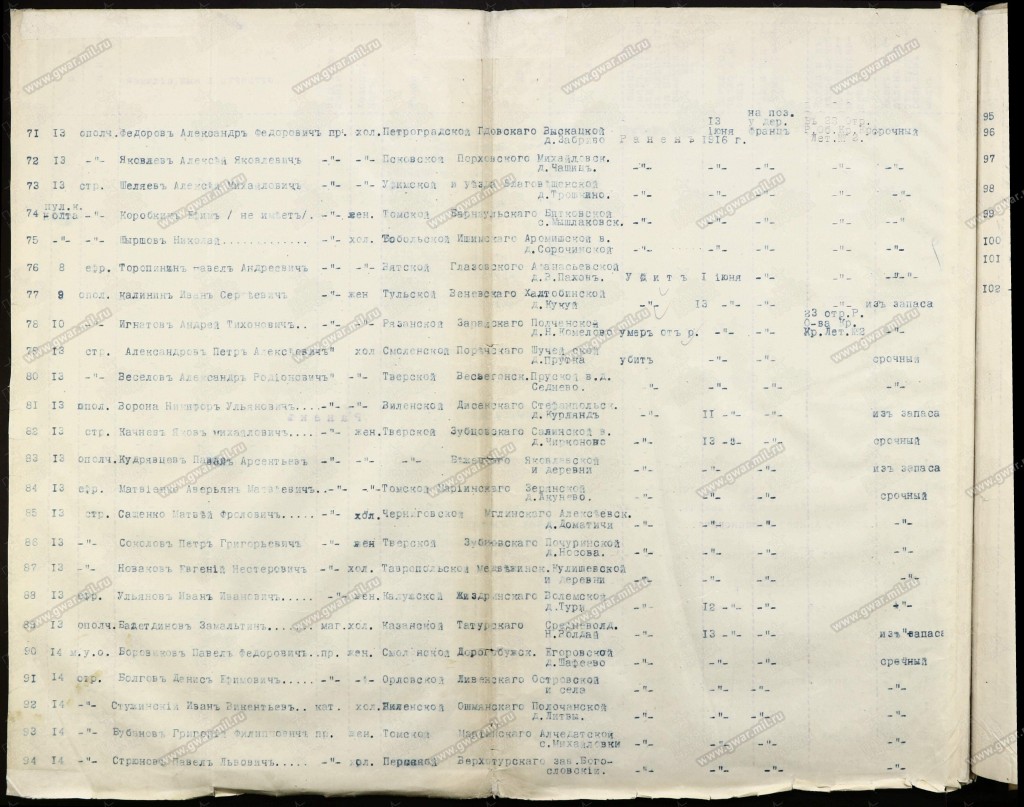 на поз.
71 13 ополч. Федоровъ Александръ Федоровичъ пр. хол. Петроградской Гдовскаго Выскацкой 13 у дер.
д.Забрино Раненъ 1юня 1916 г. Францъ срочный
72 13 -"- Яковлевъ Алексѣй Яковлевичъ -"- -"- Псковской Порховскаго Михайловск.
д.Чашиць. -"- -"- -"- -"- -"-
73 13 стр. Шеляевъ Алексѣй Михайловичъ -"- -"- Уфимской и уѣзда Благовѣщенской
д.Трошкино. -"- -"- -"- -"- -"-
пул.к.
74 Кольта -"- Коробкинъ Ефимъ / не имѣетъ/. -"- жен. Томской Барнаульскаго
с.Мышлаковск. -"- -"- -"- -"- -"-
75 -"- -"- Пыршовъ Николай.............. -"- хол. Тобольской Ишимскаго Аромишской в.
д.Сорочинской -"- -"- -"- -"- -"-
76 8 ефр. Торопицынъ Павелъ Андреевичъ -"- -"- Вятской Глазовскаго Афанасьевской
д.В.Пахом. Убитъ 1 1юня -"- -"- -"-
77 9 опол. Калининъ Иванъ Сергѣевичъ -"- жен Тульской Веневскаго Халтобинской
д.Кукуй -"- 13 -"- -"- -"- изъ запаса
23 отр.Р.
78 10 -"- Игнатовъ Андрей Тихоновичъ.. -"- -"- Рязанской Зарайскаго Полченской О-ва Кр.
д.Н.Комелово умеръ отъ р. -"- -"- Кр.Лет.№2 -"-
79 13 стр. Александровъ Петръ Алексѣевичъ" хол Смоленской Порѣчскаго Щучейской
д.Прутка убитъ -"- -"- срочный
80 13 -"- Веселовъ Александръ Родіоновичъ" -"- Тверской Весьегонск. Пруской в.д.
Седнево. -"- -"- -"- -"-
81 13 опол. Ворона Никифоръ Ульяновичъ.... -"- -"- Виленской Дисенскаго Стефанпольск.
д.Курландъ -"- 11 -"- -"- изъ запаса
82 13 стр. Качневъ Яковъ Михайловичъ.... -"- жен. Тверской Зубцовскаго Салинской в.
д.Чирконово -"- 13 -"- -"- срочный
83 13 ополч. Кудрявцевъ Павелъ Арсентьевъ -"- -"- -"- Бѣжецкаго Яковлевской
и деревни -"- -"- -"- изъ запаса
84 13 ефр. Матвіенко Аверьянъ Матвѣевичъ.. -"- -"- Томской Маріинскаго
д.Акунево. -"- -"- -"- срочный
85 13 стр. Сащенко Матвѣй Фроловичъ..... -"- хол. Черниговской Мглинскаго Алексѣевск.
д.Доматичи -"- -"- -"- -"-
86 13 -"- Соколовъ Петръ Григорьевичъ -"- жен Тверской Зубцовскаго Почуринской
д.Носова. -"- -"- -"- -"-
87 13 -"- Новаковъ Евгеній Нестеровичъ -"- хол. Тавропольской Медвѣжинск. Кулишевской
и деревни -"- -"- -"- -"-
88 13 ефр. Ульяновъ Иванъ Ивановичъ..... -"- жен. Калужской Жиздринскаго Волемской
д.Тури -"- 12 -"- -"- -"-
89 13 ополч. Замальтынъ... маг. хол. Казанской Татурскаго Средневолд.
Н.Болдай -"- 13 -"- -"- изъ запаса
90 14 м.у.о. Боровиковъ Павелъ Федоровичъ.. пр. жен. Смоленской Дорогобужск. Егоровской
д.Шафеево -"- -"- -"- сречный
91 14 стр. Болговъ Денисъ Ефимовичъ..... -"- -"- Орловской Ливенскаго Островской
и села -"- -"- -"- -"-
92 14 -"- Стужинскій Иванъ Викентьевъ.. кат. хол. Виленской Ошмянскаго Полочанской
д.Литвы. -"- -"- -"- -"-
93 14 -"- Бубановъ Григорій Филипповичъ пр. жен. Томской Маріинскаго Алчедатской
с.Михайловки -"- -"- -"- -"-
94 14 -"- Стрюковъ Павелъ Львовичъ..... -"- хол. Пермской Верхотурскаго зав.Бого-
словскій. -"- -"- -"- -"-
95
96
97
98
99
100
101
102
www.gwar.mil.ru